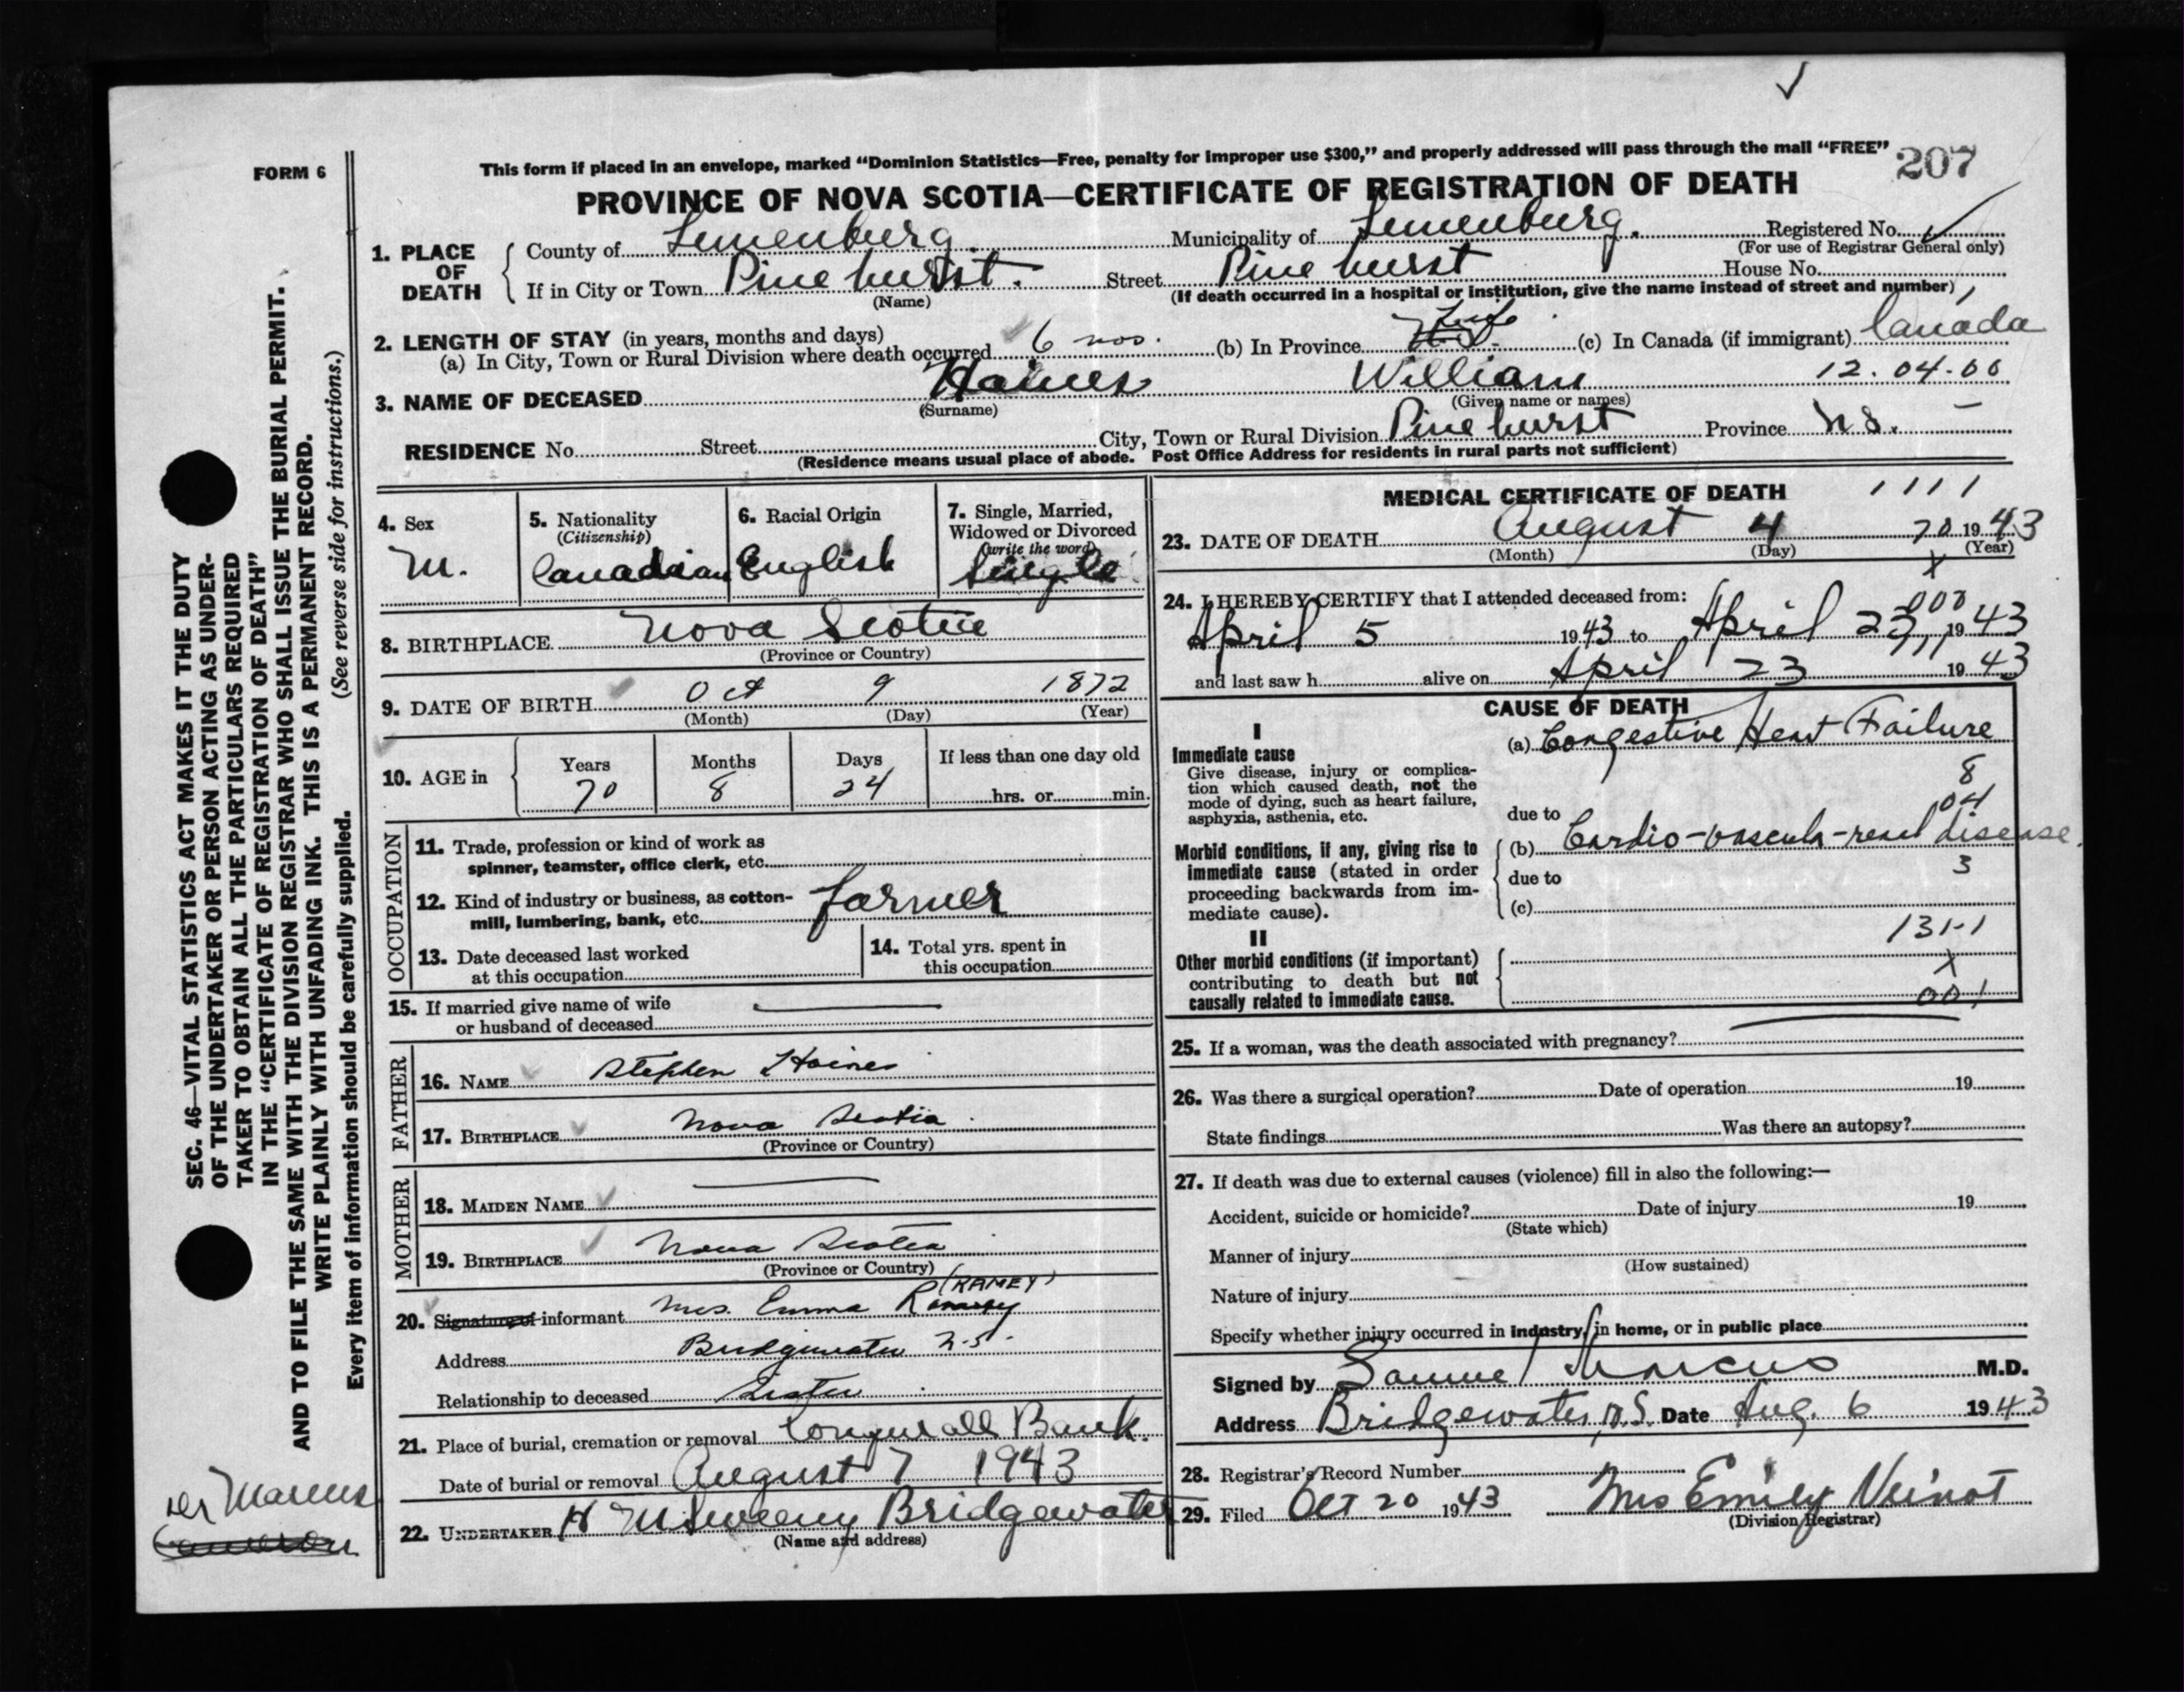 FORM 6
This form if placed in an envelope, marked “Dominion Statistics—Free, penalty for improper use $300,” and properly addressed will pass through the mail “FREE”
207
PROVINCE OF NOVA SCOTIA—CERTIFICATE OF REGISTRATION OF DEATH
1. PLACE OF DEATH
County of Lunenburg. Municipality of Lunenburg. Registered No.
(For use of Registrar General only)
If in City or Town Pine hurst. Street Pine hurst House No.
(Name) (If death occurred in a hospital or institution, give the name instead of street and number)
2. LENGTH OF STAY (in years, months and days)
(a) In City, Town or Rural Division where death occurred 6 mos. (b) In Province Life (c) In Canada (if immigrant) Canada
3. NAME OF DECEASED Haines William 12.04.00
(Surname) (Given name or names)
RESIDENCE No. Street City, Town or Rural Division Pine hurst Province N S.
(Residence means usual place of abode. Post Office Address for residents in rural parts not sufficient)
4. Sex
M.
5. Nationality
(Citizenship)
Canadian
6. Racial Origin
English
7. Single, Married,
Widowed or Divorced
(write the word)
Single
8. BIRTHPLACE Nova Scotia
(Province or Country)
9. DATE OF BIRTH Oct 9 1872
(Month) (Day) (Year)
10. AGE in
Years Months Days If less than one day old
70 8 24 hrs. or min.
OCCUPATION
11. Trade, profession or kind of work as
spinner, teamster, office clerk, etc.
12. Kind of industry or business, as cotton-
mill, lumbering, bank, etc. farmer
13. Date deceased last worked
at this occupation
14. Total yrs. spent in
this occupation
15. If married give name of wife
or husband of deceased
FATHER
16. NAME Stephen Haines
17. BIRTHPLACE Nova Scotia
(Province or Country)
MOTHER
18. MAIDEN NAME
19. BIRTHPLACE Nova Scotia
(Province or Country)
(RAMEY)
20. Signature of informant Mrs. Emma Ramey
Address Bridgewater N.S.
Relationship to deceased Sister
21. Place of burial, cremation or removal Conquerall Bank.
Date of burial or removal August 7 1943
22. UNDERTAKER Bridgewater
(Name and address)
MEDICAL CERTIFICATE OF DEATH 1111
23. DATE OF DEATH August 4 70 1943
(Month) (Day) (Year)
X
24. I HEREBY CERTIFY that I attended deceased from:
000
April 5 1943 to April 23, 1943
and last saw h alive on April 23 1943
CAUSE OF DEATH
I
Immediate cause
Give disease, injury or complica-
tion which caused death, not the
mode of dying, such as heart failure,
asphyxia, asthenia, etc.
(a) Congestive Heart Failure
8
04
due to
Morbid conditions, if any, giving rise to
immediate cause (stated in order
proceeding backwards from im-
mediate cause).
(b) Cardio-vascula-renal disease.
due to 3
(c)
131-1
II
Other morbid conditions (if important)
contributing to death but not
causally related to immediate cause.
X
001
25. If a woman, was the death associated with pregnancy?
26. Was there a surgical operation? Date of operation 19
State findings Was there an autopsy?
27. If death was due to external causes (violence) fill in also the following:—
Accident, suicide or homicide? Date of injury 19
(State which)
Manner of injury
(How sustained)
Nature of injury
Specify whether injury occurred in industry, in home, or in public place
Signed by Samuel Marcus M.D.
Address Bridgewater, N.S. Date Aug. 6 1943
28. Registrar's Record Number
29. Filed Oct 20 1943 Mrs Emily Veinot
(Division Registrar)
SEC. 46—VITAL STATISTICS ACT MAKES IT THE DUTY
OF THE UNDERTAKER OR PERSON ACTING AS UNDER-
TAKER TO OBTAIN ALL THE PARTICULARS REQUIRED
IN THE “CERTIFICATE OF REGISTRATION OF DEATH”
AND TO FILE THE SAME WITH THE DIVISION REGISTRAR WHO SHALL ISSUE THE BURIAL PERMIT.
WRITE PLAINLY WITH UNFADING INK. THIS IS A PERMANENT RECORD.
Every item of information should be carefully supplied. (See reverse side for instructions.)
Marcus